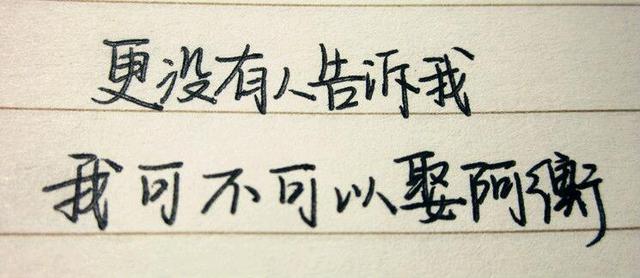 更没有人告诉我
我可不可以娶阿衡